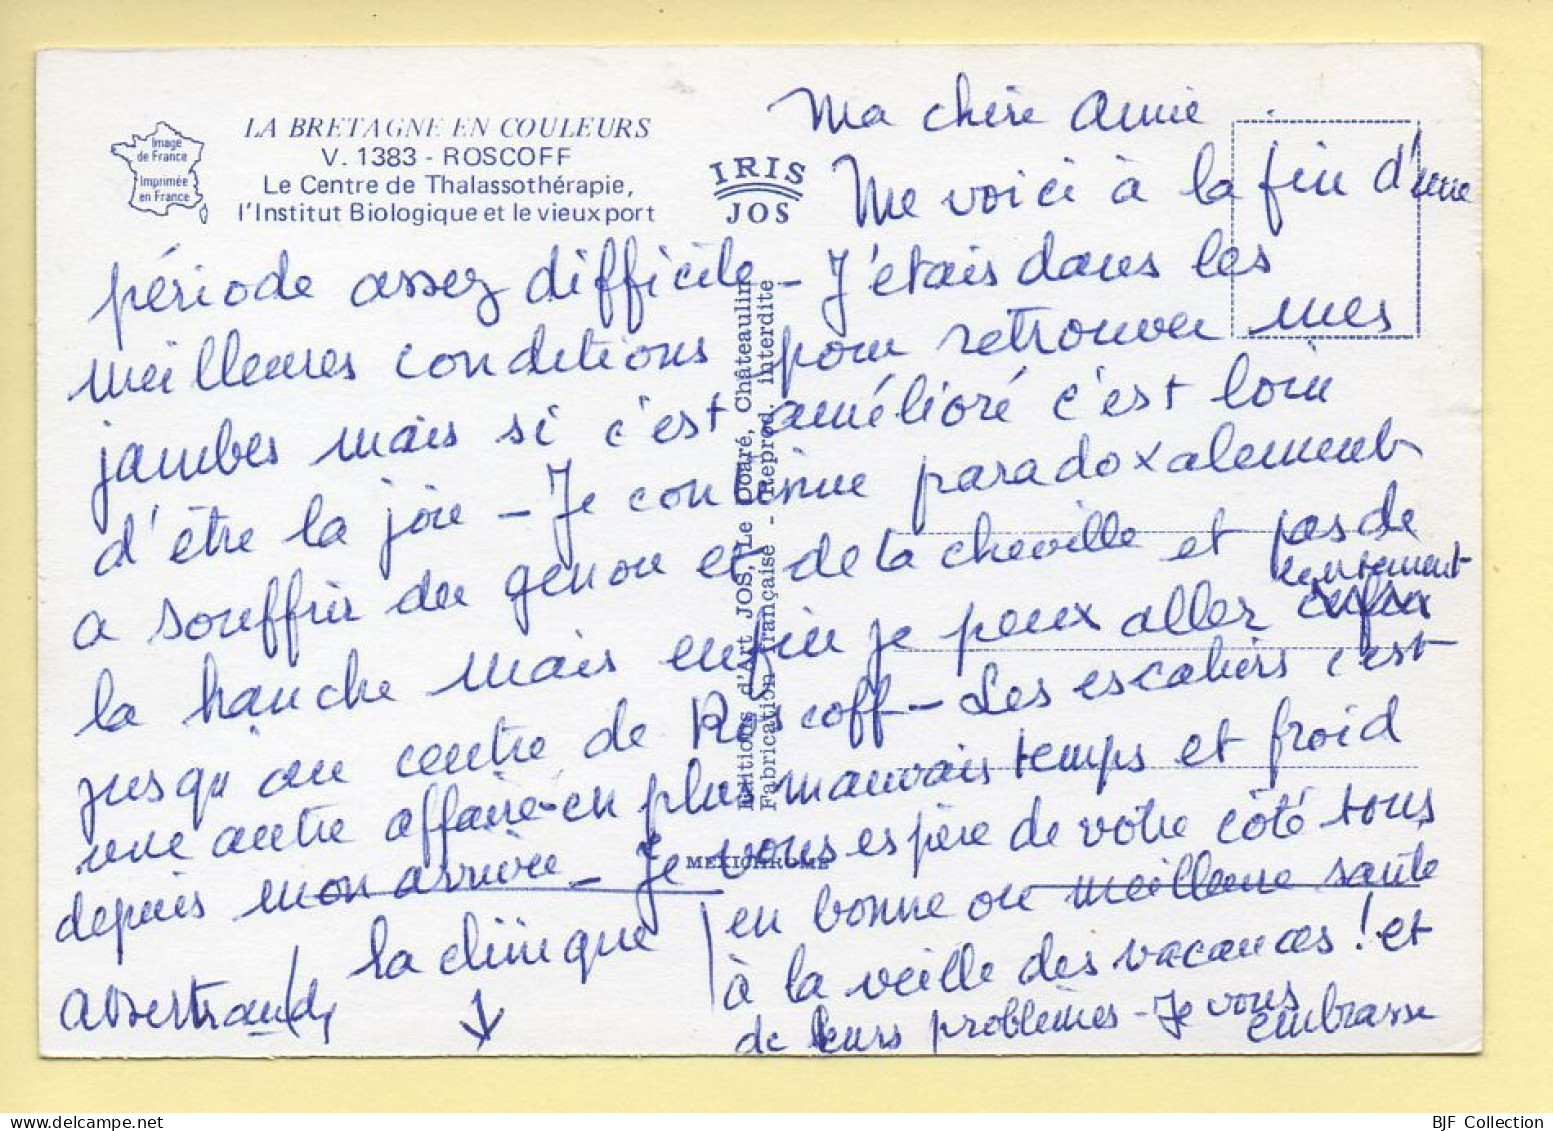 Image
de France
Imprimée
en France
LA BRETAGNE EN COULEURS
V. 1383 - ROSCOFF
Le Centre de Thalassothérapie,
l'Institut Biologique et le vieux port
IRIS
JOS
Editions d'Art JOS, Le Doaré, Châteaulin
Fabrication française - Reprod. interdite
MEXICHROME
Ma chère Annie
Me voici à la fin d'une
période assez difficile - J'étais dans les
meilleures conditions pour retrouver mes
jambes mais si c'est amélioré c'est loin
d'être la joie - Je continue paradoxalement
a souffrir du genou et de la cheville et pas de
la hanche mais enfin je peux aller lentement
jusqu'au centre de Roscoff - Les escaliers c'est
une autre affaire - en plus mauvais temps et froid
depuis mon arrivée - Je vous espère de votre côté tous
en bonne ou meilleure santé
à la veille des vacances ! et
de leurs problèmes - Je vous
embrasse
la clinique
ABertrand
BJF Collection